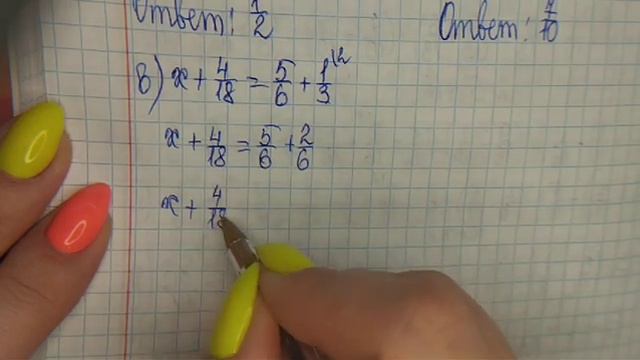 Ответ: 1/2
Ответ: 7/10
в) x + 4/18 = 5/6 + 1/3 \2
x + 4/18 = 5/6 + 2/6
x + 4/18